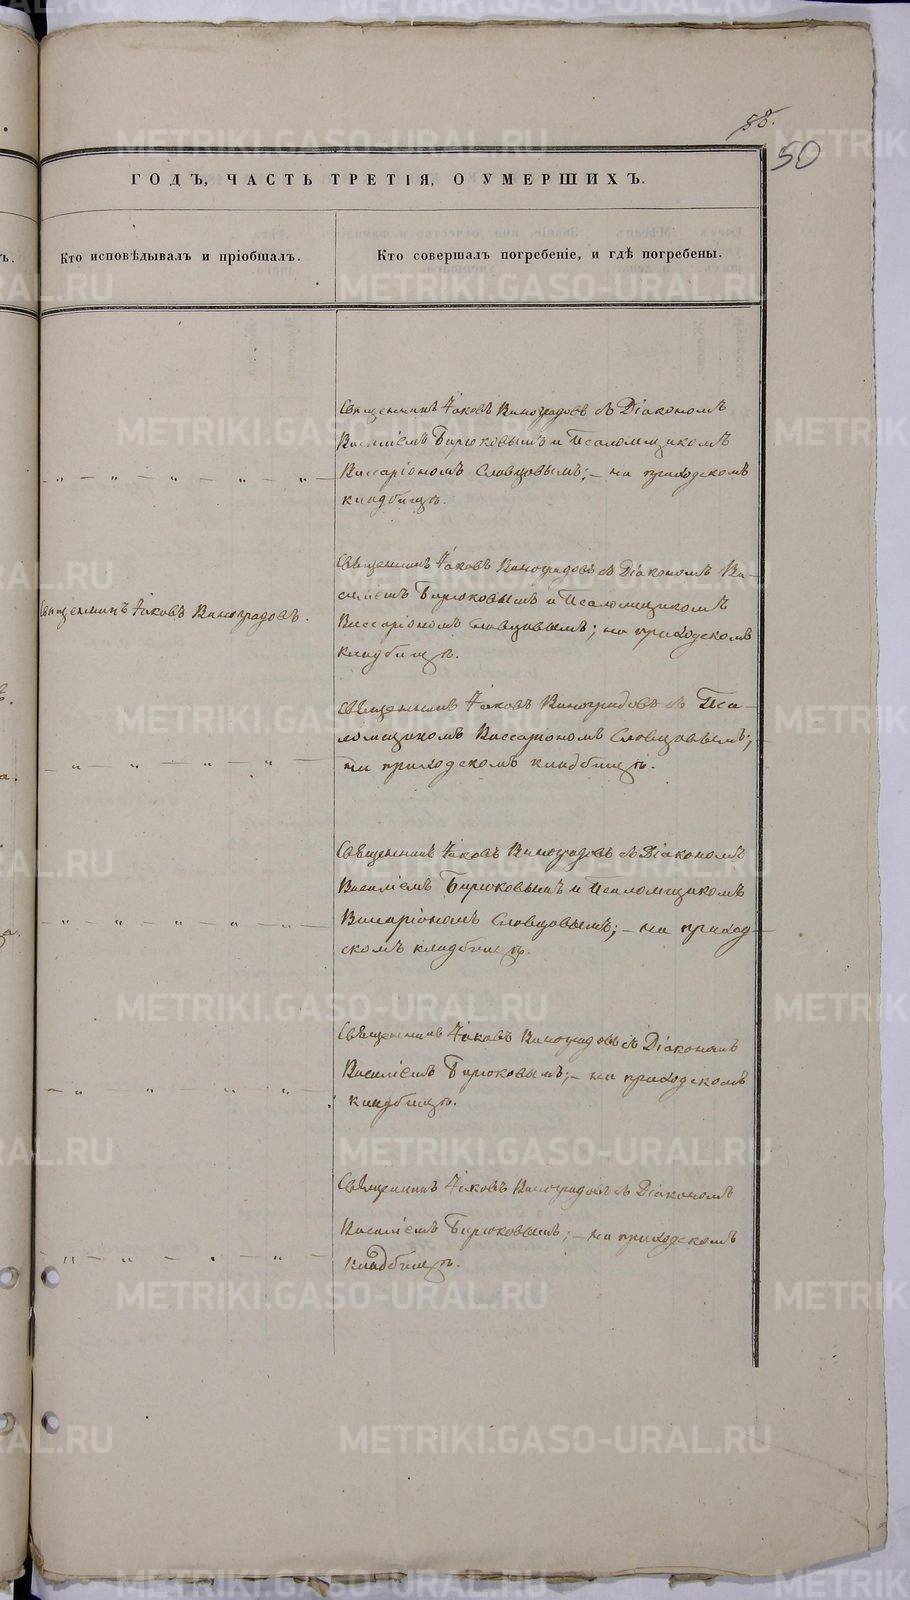 58.
50
ГОДЪ, ЧАСТЬ ТРЕТІЯ, О УМЕРШИХЪ.
Кто исповѣдывалъ и пріобщалъ.
Кто совершалъ погребеніе, и гдѣ погребены.
Священникъ Іаковъ Виноградовъ съ Діакономъ
Василіемъ Бирюковымъ и Псаломщикомъ
Виссаріономъ Словцовымъ; – на приходскомъ
кладбищѣ.
Священникъ Іаковъ Виноградовъ.
Священникъ Іаковъ Виноградовъ съ Діакономъ Ва-
силіемъ Бирюковымъ и Псаломщикомъ
Виссаріономъ Словцовымъ; на приходскомъ
кладбищѣ.
Священникъ Іаковъ Виноградовъ съ Пса-
ломщикомъ Виссаріономъ Словцовымъ;
на приходскомъ кладбищѣ.
Священникъ Іаковъ Виноградовъ съ Діакономъ
Василіемъ Бирюковымъ и Псаломщикомъ
Виссаріономъ Словцовымъ; – на приход-
скомъ кладбищѣ.
Священникъ Іаковъ Виноградовъ съ Діакономъ
Василіемъ Бирюковымъ; – на приходскомъ
кладбищѣ.
Священникъ Іаковъ Виноградовъ съ Діакономъ
Василіемъ Бирюковымъ; – на приходскомъ
кладбищѣ.
METRIKI.GASO-URAL.RU